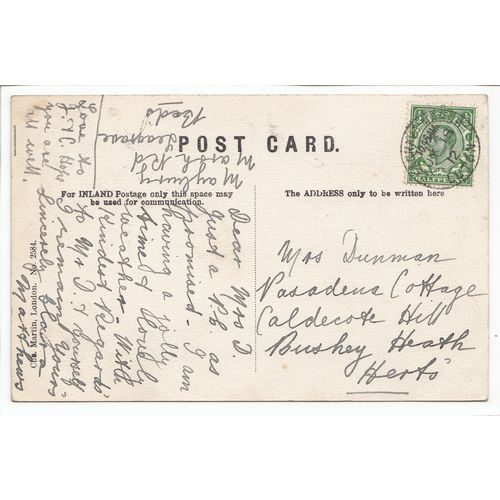 POST CARD.
For INLAND Postage only this space may
be used for communication.
The ADDRESS only to be written here
Cha. Martin, London. No. 2584.
Maylbury
Marsh Rd
Leagrave
Beds
Dear Mrs D.
Just a P.C. as
promised – I am
having a jolly
time & lovely
weather – With
Kindest Regards
to Mr D. & yourself
I remain Yours
Sincerely
Mathews
Love to
J. & C. Hope
you are
all well.
Mrs Dunman
Pasadena Cottage
Caldecote Hill
Bushey Heath
Herts